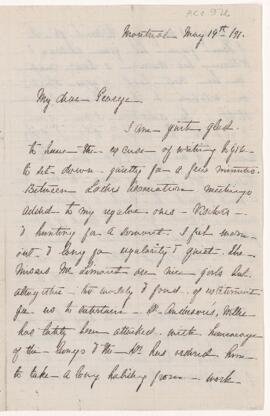 Montreal May 19th /91.
My dear George
I am just glad
to have the excuse of writing to you
to set down quietly for a few minutes.
Between Ladies Association meetings
added to my regular ones - Visitors -
& hunting for a servant I feel worn
out. I long for regularity & quiet. The
Misses are nice girls but
altogether too worldly & fond of excitement
for us to entertain - Dr. Anderson's, Willie
has lately been attacked with hemorrhage
of the lungs & the Dr. has ordered him
to take a long holiday from - work